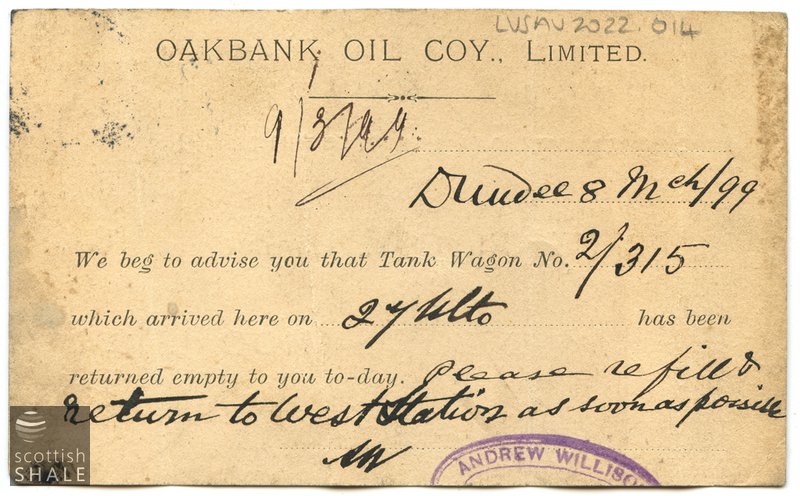 LVSAV 2022.014
OAKBANK OIL COY., LIMITED.
9/3/99.
Dundee 8 Mch/99
We beg to advise you that Tank Wagon No. 2/315
which arrived here on 27 Ulto has been
returned empty to you to-day. Please refill &
return to West Station as soon as possible
AW
ANDREW WILLISO
scottish
SHALE